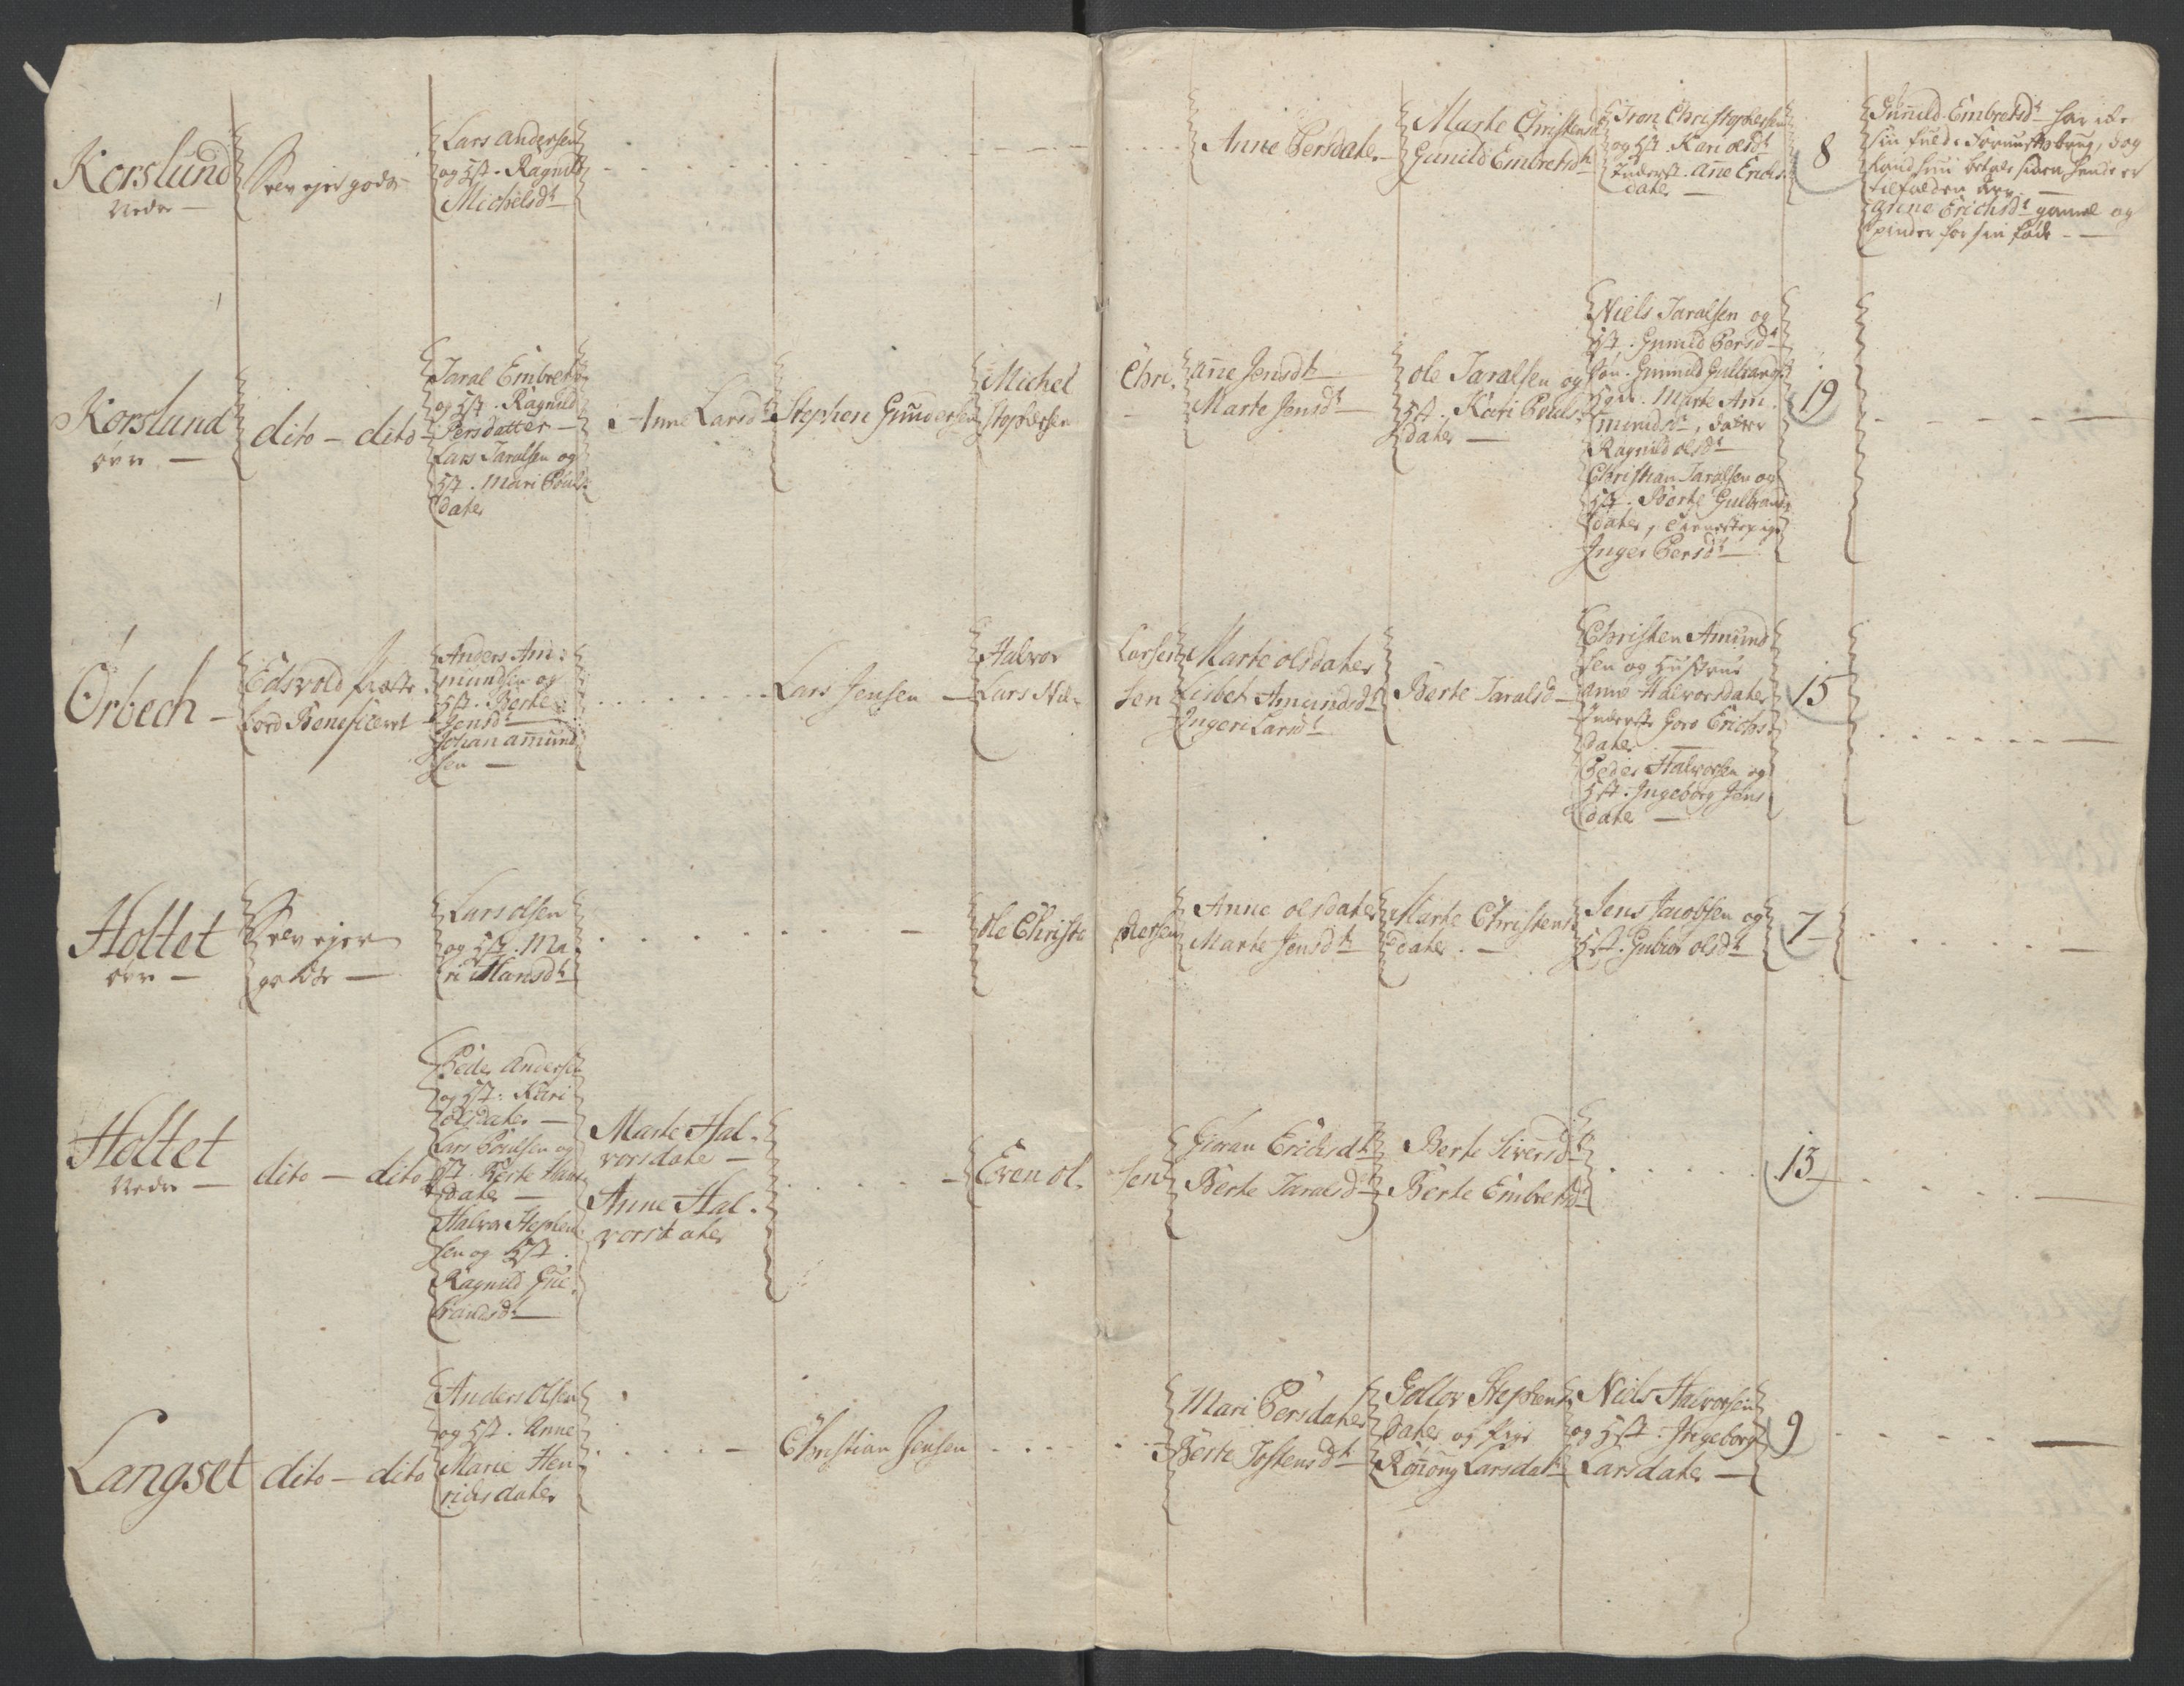 Korslund
Nedre —
Selv ejer gods
Lars Andersen
og Hst. Ragnild
Michelsdt
Anne Persdater
Marte Christensd
Gunild Embretsdt
Iron Christophersen
og Hst. Kari olsdt
Inderst. Anne Erichs
dater —
8
Gunild Embretsdt har icke
sin fulde Fornufts brug, dog
kand hun betale siden hende er
tilfalden Arv —
Anne Erichsdt gamel og
spinder for sin føde —
Korslund
øvre —
dito — dito
Taral Embret
og Hst. Ragnild
Persdatter —
Lars Taralsen og
Hst. Mari Pouls
dater
Anne Larsdt
Stephen Gundersen
Michel Chri
stophersen
Anne Jensdt
Marte Jensdt
ole Taralsen og
Hst. Kari Pouls
dater —
Niels Taralsen og
Hst. Gunild Persdt
Søn. Gunnuld Gulbrands
Marte Am
mundsdr, dater
Ragnild olsdt
Christian Taralsen og
Hst. Berte Gulbrands
dater, tienestepige
Inger Persdt
19
Ørbech —
Edsvold Præste
bord Beneficeret
Anders Am
mundsen og
Hst. Berte
Jensdt
Johan Amund
sen —
Lars Jensen —
Halvor Larsen
Lars Niel sen
Marte olsdater
Lisbet Amundsdt
Ingeri Larsdt
Berte Taralsd
Christen Amund
sen og Hustrue
Anne Halvorsdater
Inderste Goro Erichs
dater —
Peder Halvorsen og
Hst. Ingeborg Jens
dater —
15
Holtet
øvre —
Selv ejer
gods —
Lars olsen
og Hst. Ma
ri Hansdt
ole Christo phersen
Anne olsdater
Marte Jensdt
Marte Christens
dater. —
Jens Jacobsen og
Hst. Gubior olsdt
7
Holtet
Nedre —
dito — dito
Peder Andersen
og Hst. Kari
olsdater —
Lars Poulsen og
Hst. Berte Hans
dater —
Halvor Stephen
sen og Hst.
Ragnild Gul
brandsdt
Marte Hal
vorsdater —
Anne Hal
vorsdater
Even ol sen
Gioran Erichsdt
Berte Taralsdt
Berte Siversdt
Berte Embretsdt
13
Langset
dito — dito
Anders Olsen
og Hst. Anne
Marie Hen
richsdater
Christian Jensen
Mari Persdater
Berte Jostensdt
Gollov Stephens
dater og Pige
Rønnog Larsdat
Niels Halvorsen
og Hst. Ingeborg
Larsdater —
9